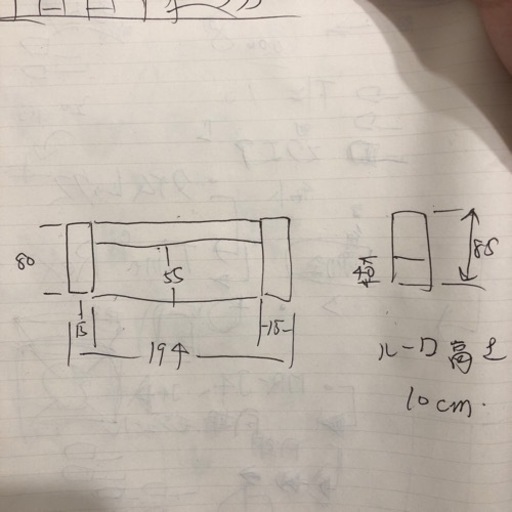 80
55
15
15
194
40
88
高さ
10cm.